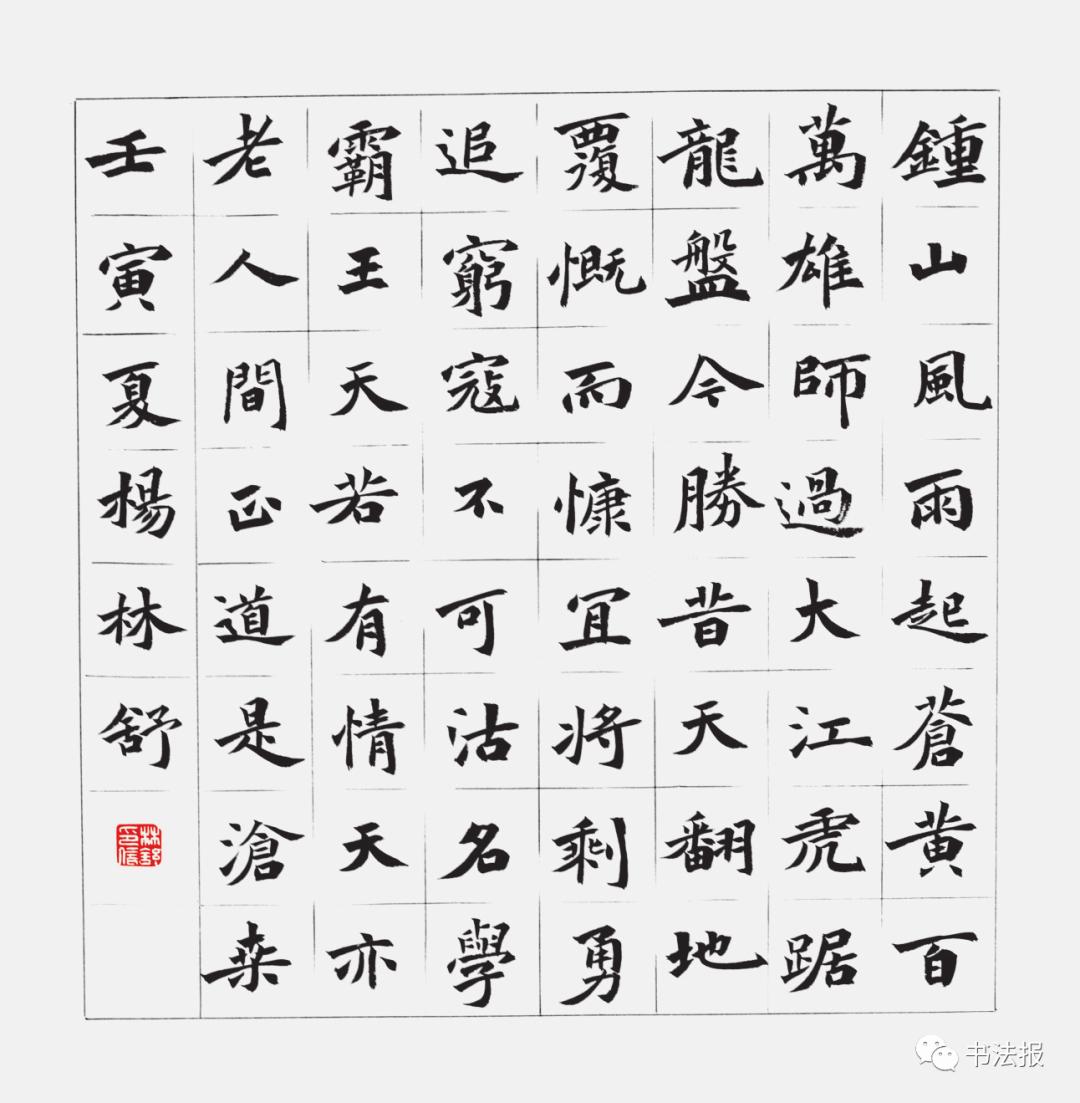 鍾山風雨起蒼黄百
萬雄師過大江虎踞
龍盤今勝昔天翻地
覆慨而慷宜将剩勇
追窮寇不可沽名學
霸王天若有情天亦
老人間正道是滄桒
壬寅夏楊林舒
林舒印信
书法报